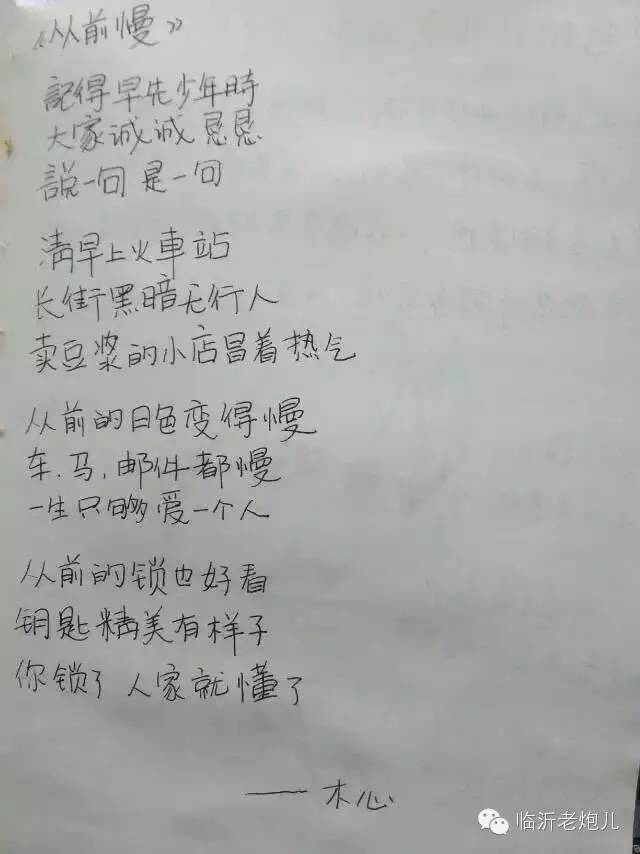 《从前慢》
記得早先少年時
大家诚诚恳恳
説一句 是一句
清早上火車站
长街黑暗无行人
卖豆浆的小店冒着热气
从前的日色变得慢
车.马,邮件都慢
一生只够爱一个人
从前的锁也好看
钥匙精美有样子
你锁了 人家就懂了
——木心
临沂老炮儿